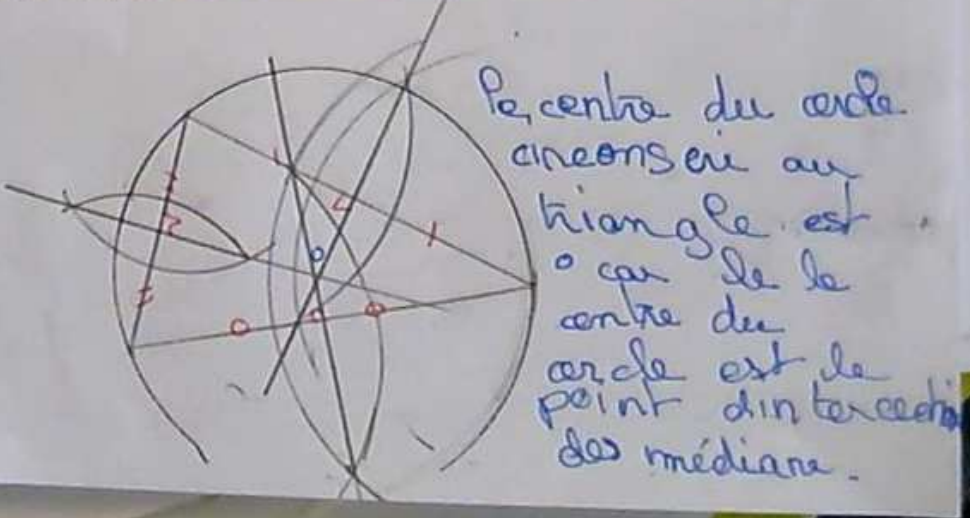 Le centre du cercle
circonscri au
triangle est
o car le le
centre du
cercle est le
point d'intercection
des médiane.
o